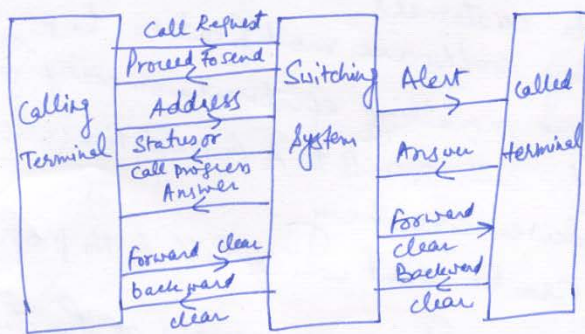 Call Request
Proceed To send
Calling
Terminal
Address
Status or
Call progress
Answer
Forward clear
backward
clear
Switching
System
Alert
Answer
Forward
clear
Backward
clear
Called
terminal